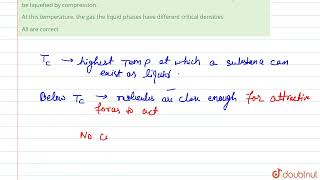 be liquefied by compression.
At this temperature, the gas the liquid phases have different critical densities
All are correct
Tc → highest Temp at which a substance can
exist as liquid.
Below Tc → molecules are close enough for attractive
forces to act
No c
doubtnut